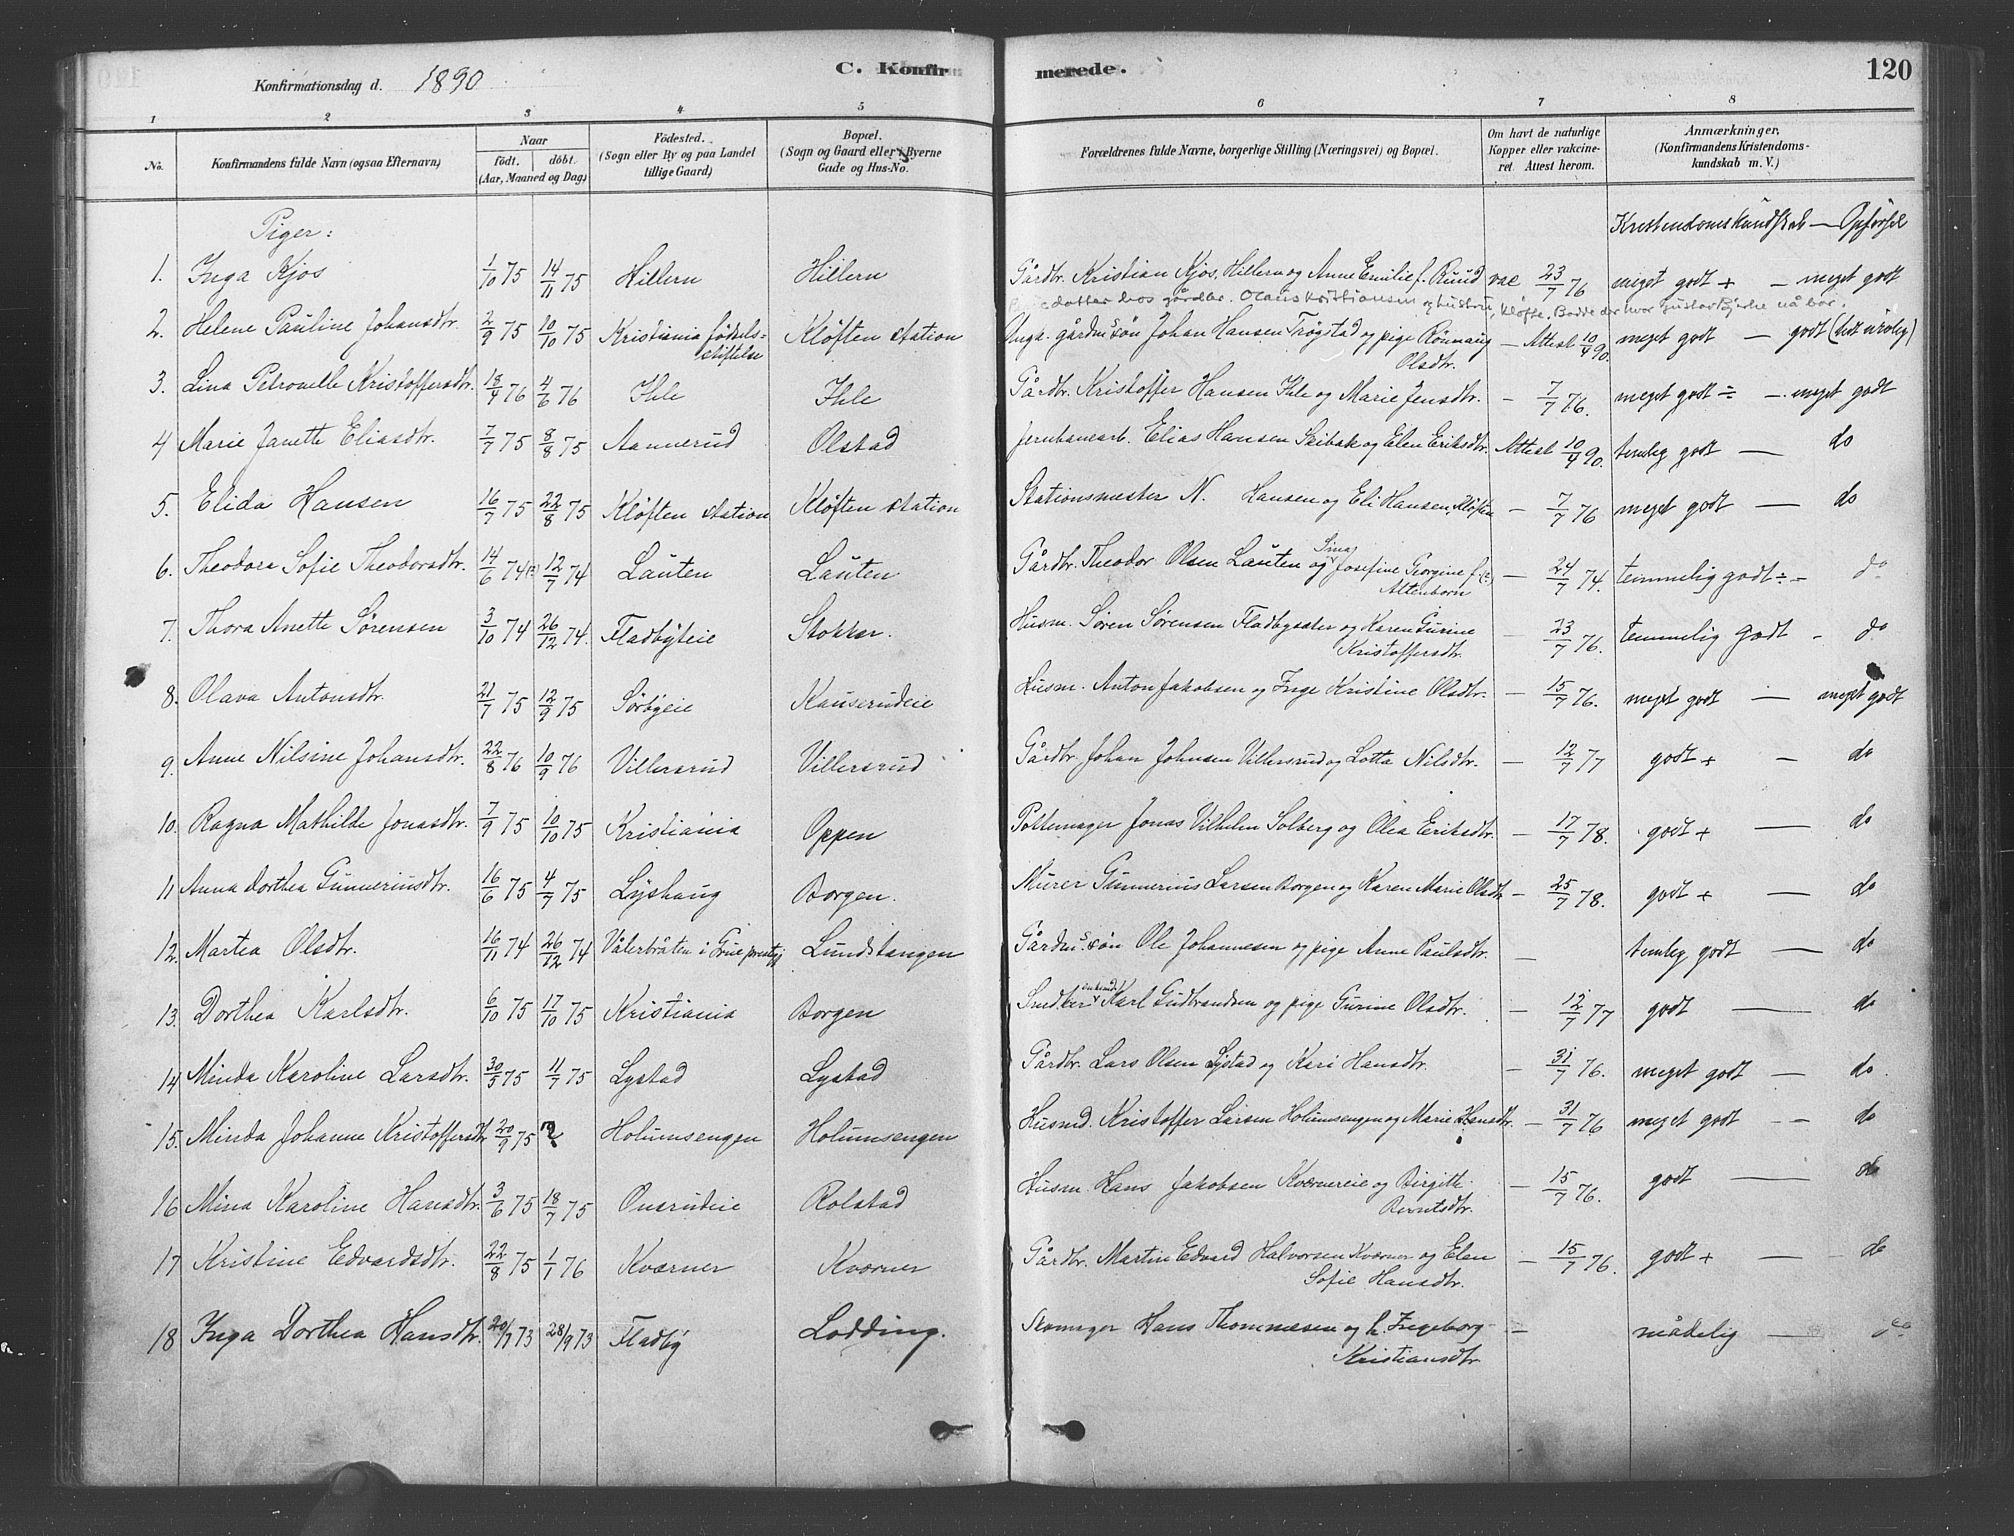 120
Konfirmationsdag d. 1890
C. Konfirmerede.
1 2 3 4 5 6 7 8
No. Konfirmandens fulde Navn (ogsaa Efternavn) Naar födt. döbt. (Aar, Maaned og Dag) Födested. (Sogn eller By og paa Landet tillige Gaard) Bopæl. (Sogn og Gaard eller i Byerne Gade og Hus-No. Forældrenes fulde Navne, borgerlige Stilling (Næringsvei) og Bopæl. Om havt de naturlige Kopper eller vakcineret. Attest herom. Anmærkninger, (Konfirmandens Kristendomskundskab m. V.)
Piger: Kristendomskundskab — Opførsel
1. Inga Kjos 1/10 75 14/11 75 Hillern Hillern Gårdbr. Kristian Kjos, Hillern og Anne Emilie f. Ruud vac 23/7 76 meget godt + — meget godt
datter hos gårdbr. Olaus Kristiansen og hustru, Kløfta. Bodde der hvor Gustav Bjerke nå bor.
2. Helene Pauline Johansdtr. 2/9 75 10/10 75 Kristiania födselsstiftelse Kløften station Unga. gårdm.s søn Johan Hansen Trøgstad og pige Rönnaug Olsdtr. — Attest 10/4 90. meget godt — godt (lidt urolig)
3. Lina Petronelle Kristoffersdtr. 18/4 76 4/6 76 Ihle Ihle Gårdbr. Kristoffer Hansen Ihle og Marie Jensdtr. — 7/7 76. meget godt ÷ — meget godt
4 Marie Janette Eliasdtr. 7/7 75 8/8 75 Aannerud Olstad Jernbanearb. Elias Hansen Skibak og Elen Eriksdtr. Attest 10/4 90. temlig godt — do
5. Elida Hansen 16/7 75 22/8 75 Kløften station Kløften station Stationsmester N. Hansen og Eli Hansen, Kløften — 7/7 76 meget godt — do
6. Theodora Sofie Theodorsdtr. 14/6 74(?) 12/7 74 Lauten Lauten Gårdbr. Theodor Olsen Lauten og Sina Josefine Georgine f. (?) Altenborn — 24/7 74. temmelig godt ÷ — do
7. Thora Anette Sørensen 3/10 74 26/12 74. Fladbyteie Stokker. Husm. Søren Sørensen Fladbysæter og Karen Gurine Kristoffersdtr. — 23/7 76. temmelig godt - do
8. Olava Antonsdtr. 21/7 75 12/9 75 Sörbyeie Kauserudeie Husm. Anton Jakobsen og Inge Kristine Olsdtr. — 15/7 76. meget godt — meget godt
9. Anne Nilsine Johansdtr. 22/8 76 10/9 76 Villersrud Villersrud Gårdbr. Johan Johnsen Villersrud og Lotta Nilsdtr. — 12/7 77 godt + — do
10. Ragna Mathilde Jonasdtr. 7/9 75 10/10 75 Kristiania Oppen Pottemager Jonas Vilhelm Solberg og Olea Eriksdtr. — 17/7 78. godt + — do
11 Anna Dorthea Gunneriusdtr. 16/6 75 4/7 75 Lyshaug Borgen. Murer Gunnerius Larsen Borgen og Karen Marie Olsdtr — 25/7 78. godt + — do
12. Martea Olsdtr. 16/11 74 26/12 74 Vålerbråten i Grue prestegj Lundstangen Gårdm.s søn Ole Johannesen og pige Anne Paulsdtr. — temlig godt — do
13. Dorthea Karlsdtr. 6/10 75 17/10 75 Kristiania Borgen Snedkersvend Karl Gudbrandsen og pige Gurine Olsdtr. — 12/7 77 godt — do
14 Minda Karoline Larsdtr. 30/5 75 11/7 75 Lystad Lystad Gårdbr. Lars Olsen Lystad og Kari Hansdtr. — 31/7 76. meget godt — do
15. Minda Johanne Kristoffersdtr 20/9 75 ? Holumsengen Holumsengen Husmd. Kristoffer Larsen Holumsengen og Marie Hansdtr. — 31/7 76 meget godt - - do
16 Mina Karoline Hansdtr. 3/6 75 18/7 75 Onsrudeie Rolstad Husm. Hans Jakobsen Kværnereie og Birgitte Berntsdtr. — 15/7 76. godt — do
17 Kristine Edvardsdtr. 22/8 75 1/1 76 Kværner Kværner Gårdbr. Martin Edvard Halvorsen Kværner og Elen Sofie Hansdtr. — 15/7 76. godt + — do
18 Inga Dorthea Hansdtr. 20/7 73 28/9 73 Fladby Lodding. Skomager Hans Thommesen og h. Ingeborg Kristiansdtr — mådelig — do